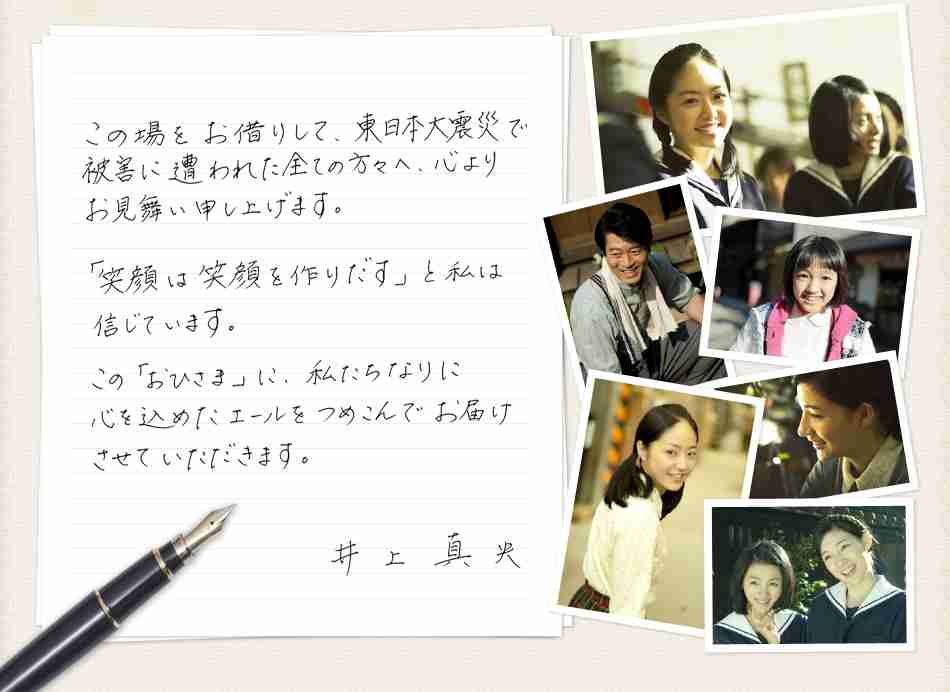 この場をお借りして、東日本大震災で
被害に遭われた全ての方々へ、心より
お見舞い申し上げます。
「笑顔は笑顔を作りだす」と私は
信じています。
この「おひさま」に、私たちなりに
心を込めたエールをつめこんでお届け
させていただきます。
井上真央